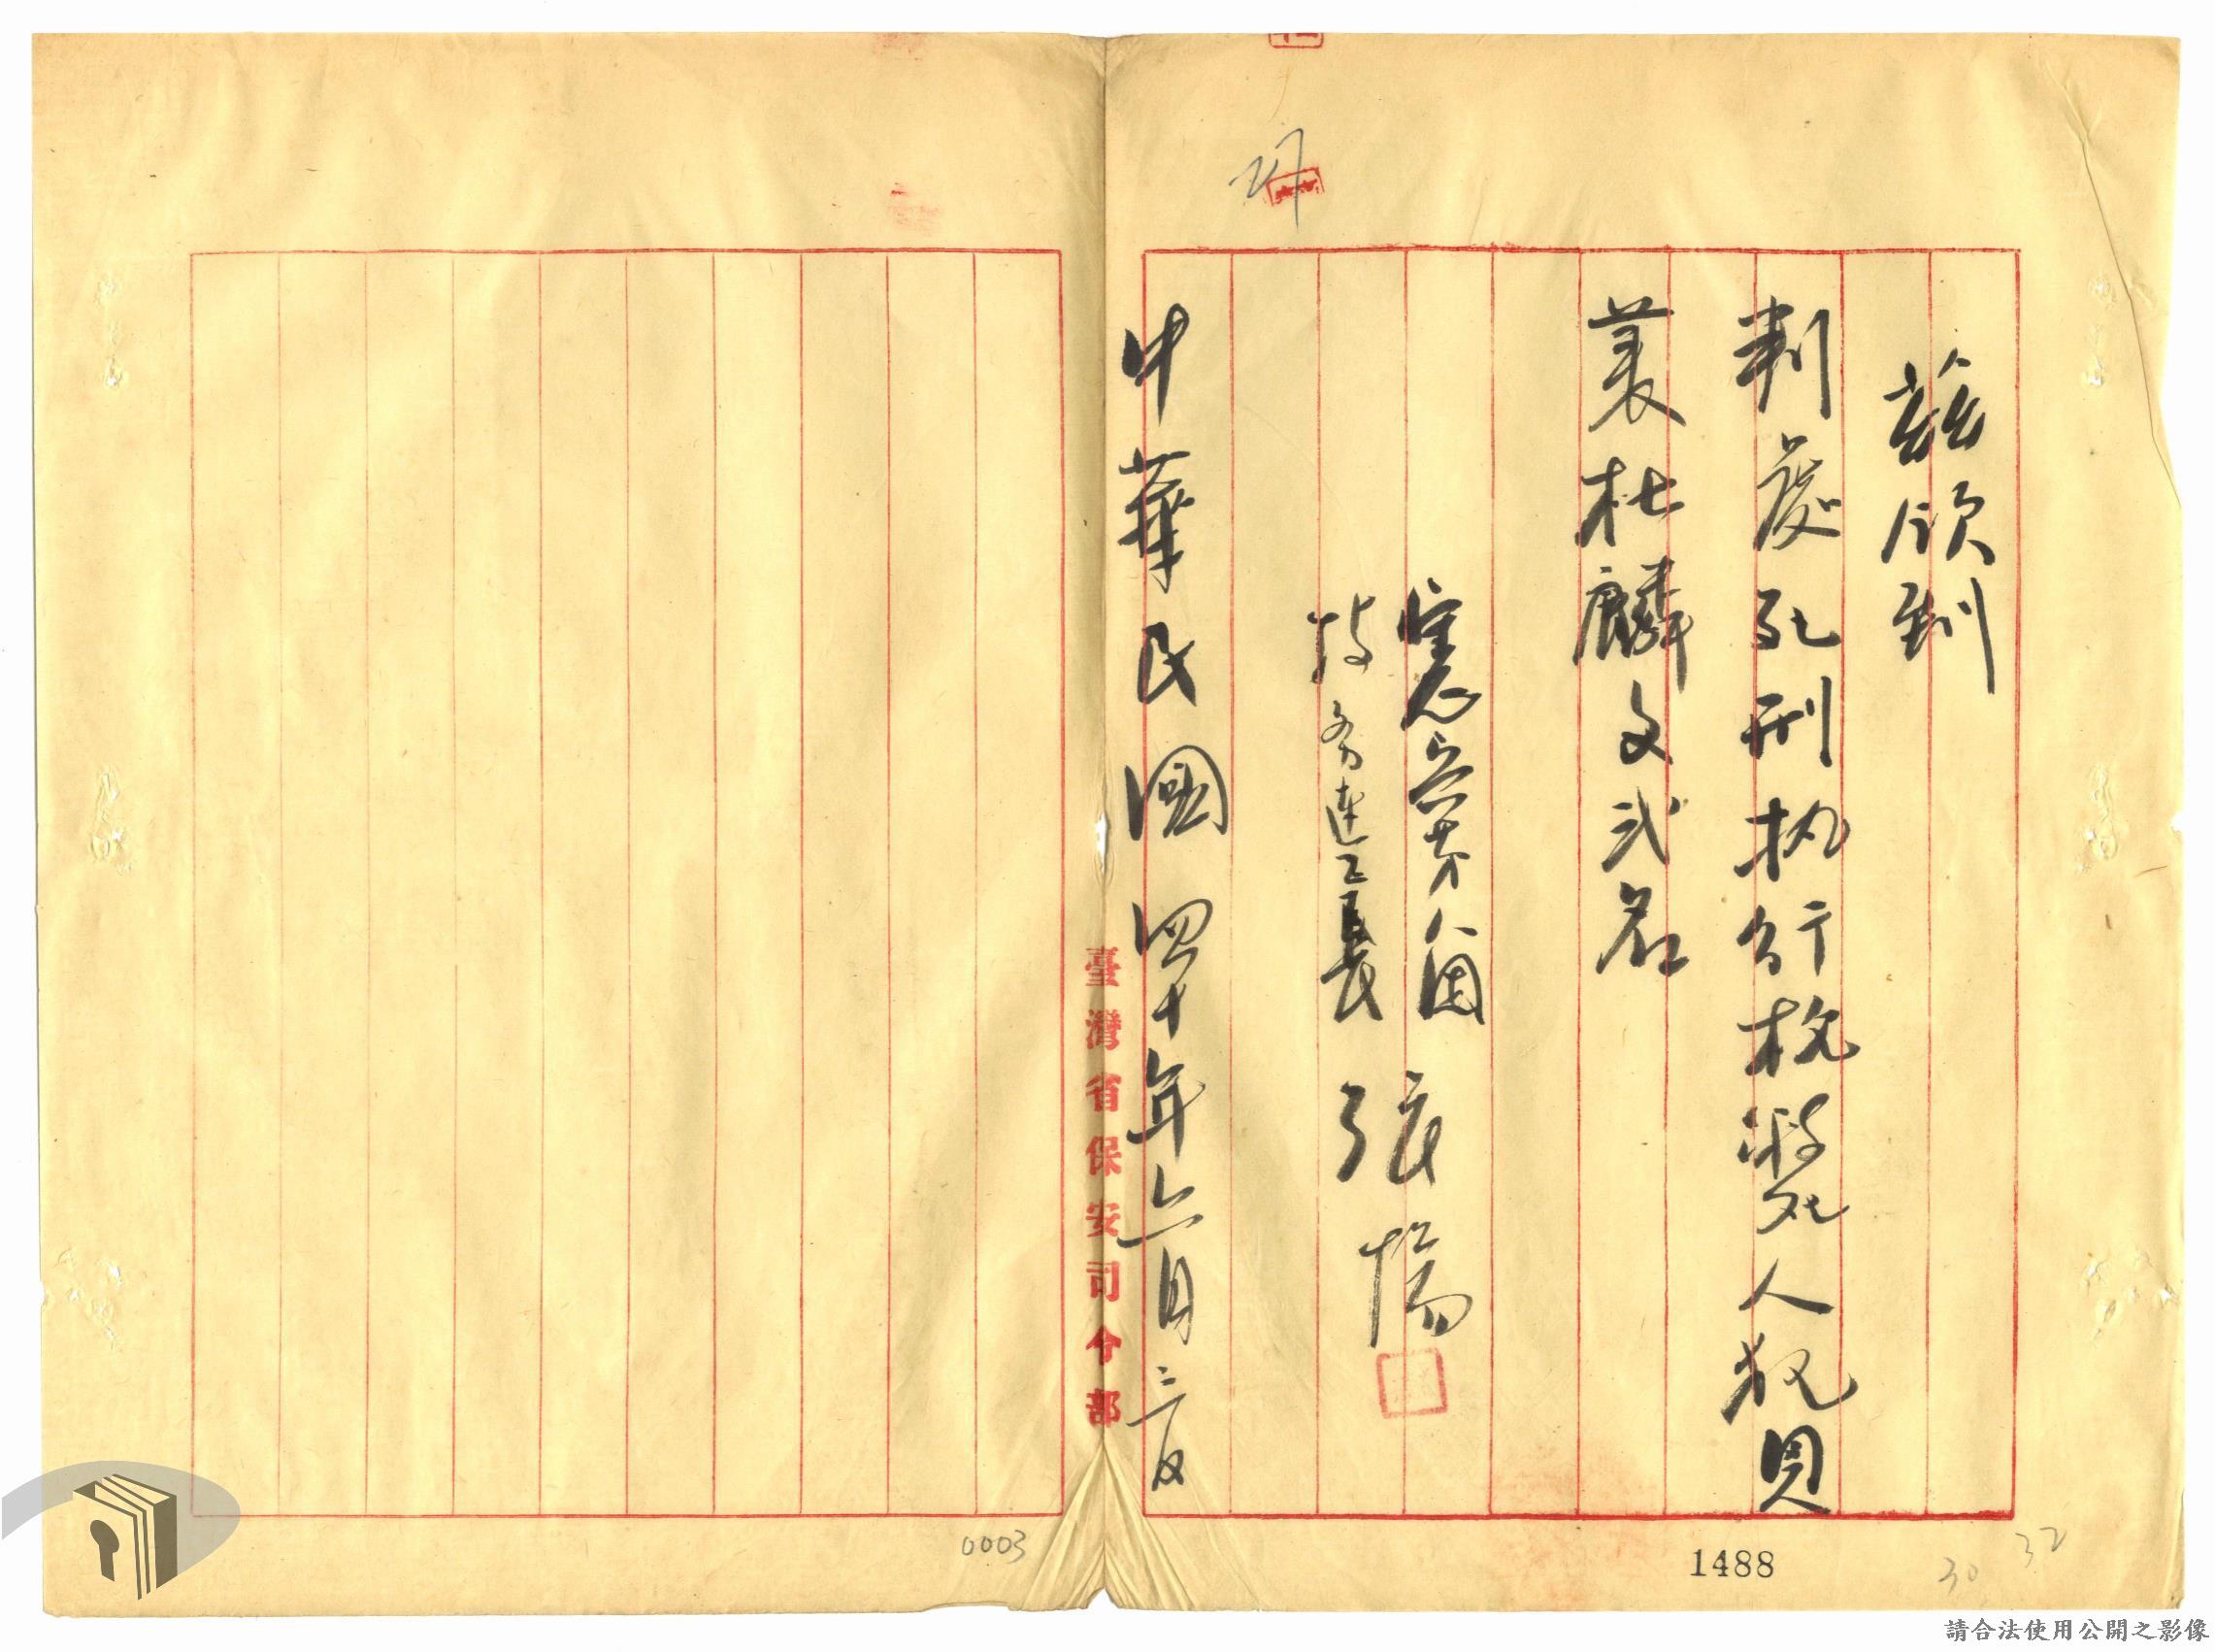 茲領到
判處死刑执行槍斃死人犯貝
杜麟文弍名
憲兵第八團
特务連連長 張
中華民國四十年六月
臺灣省保安司令部
27
0003
1488
30
32
請合法使用公開之影像